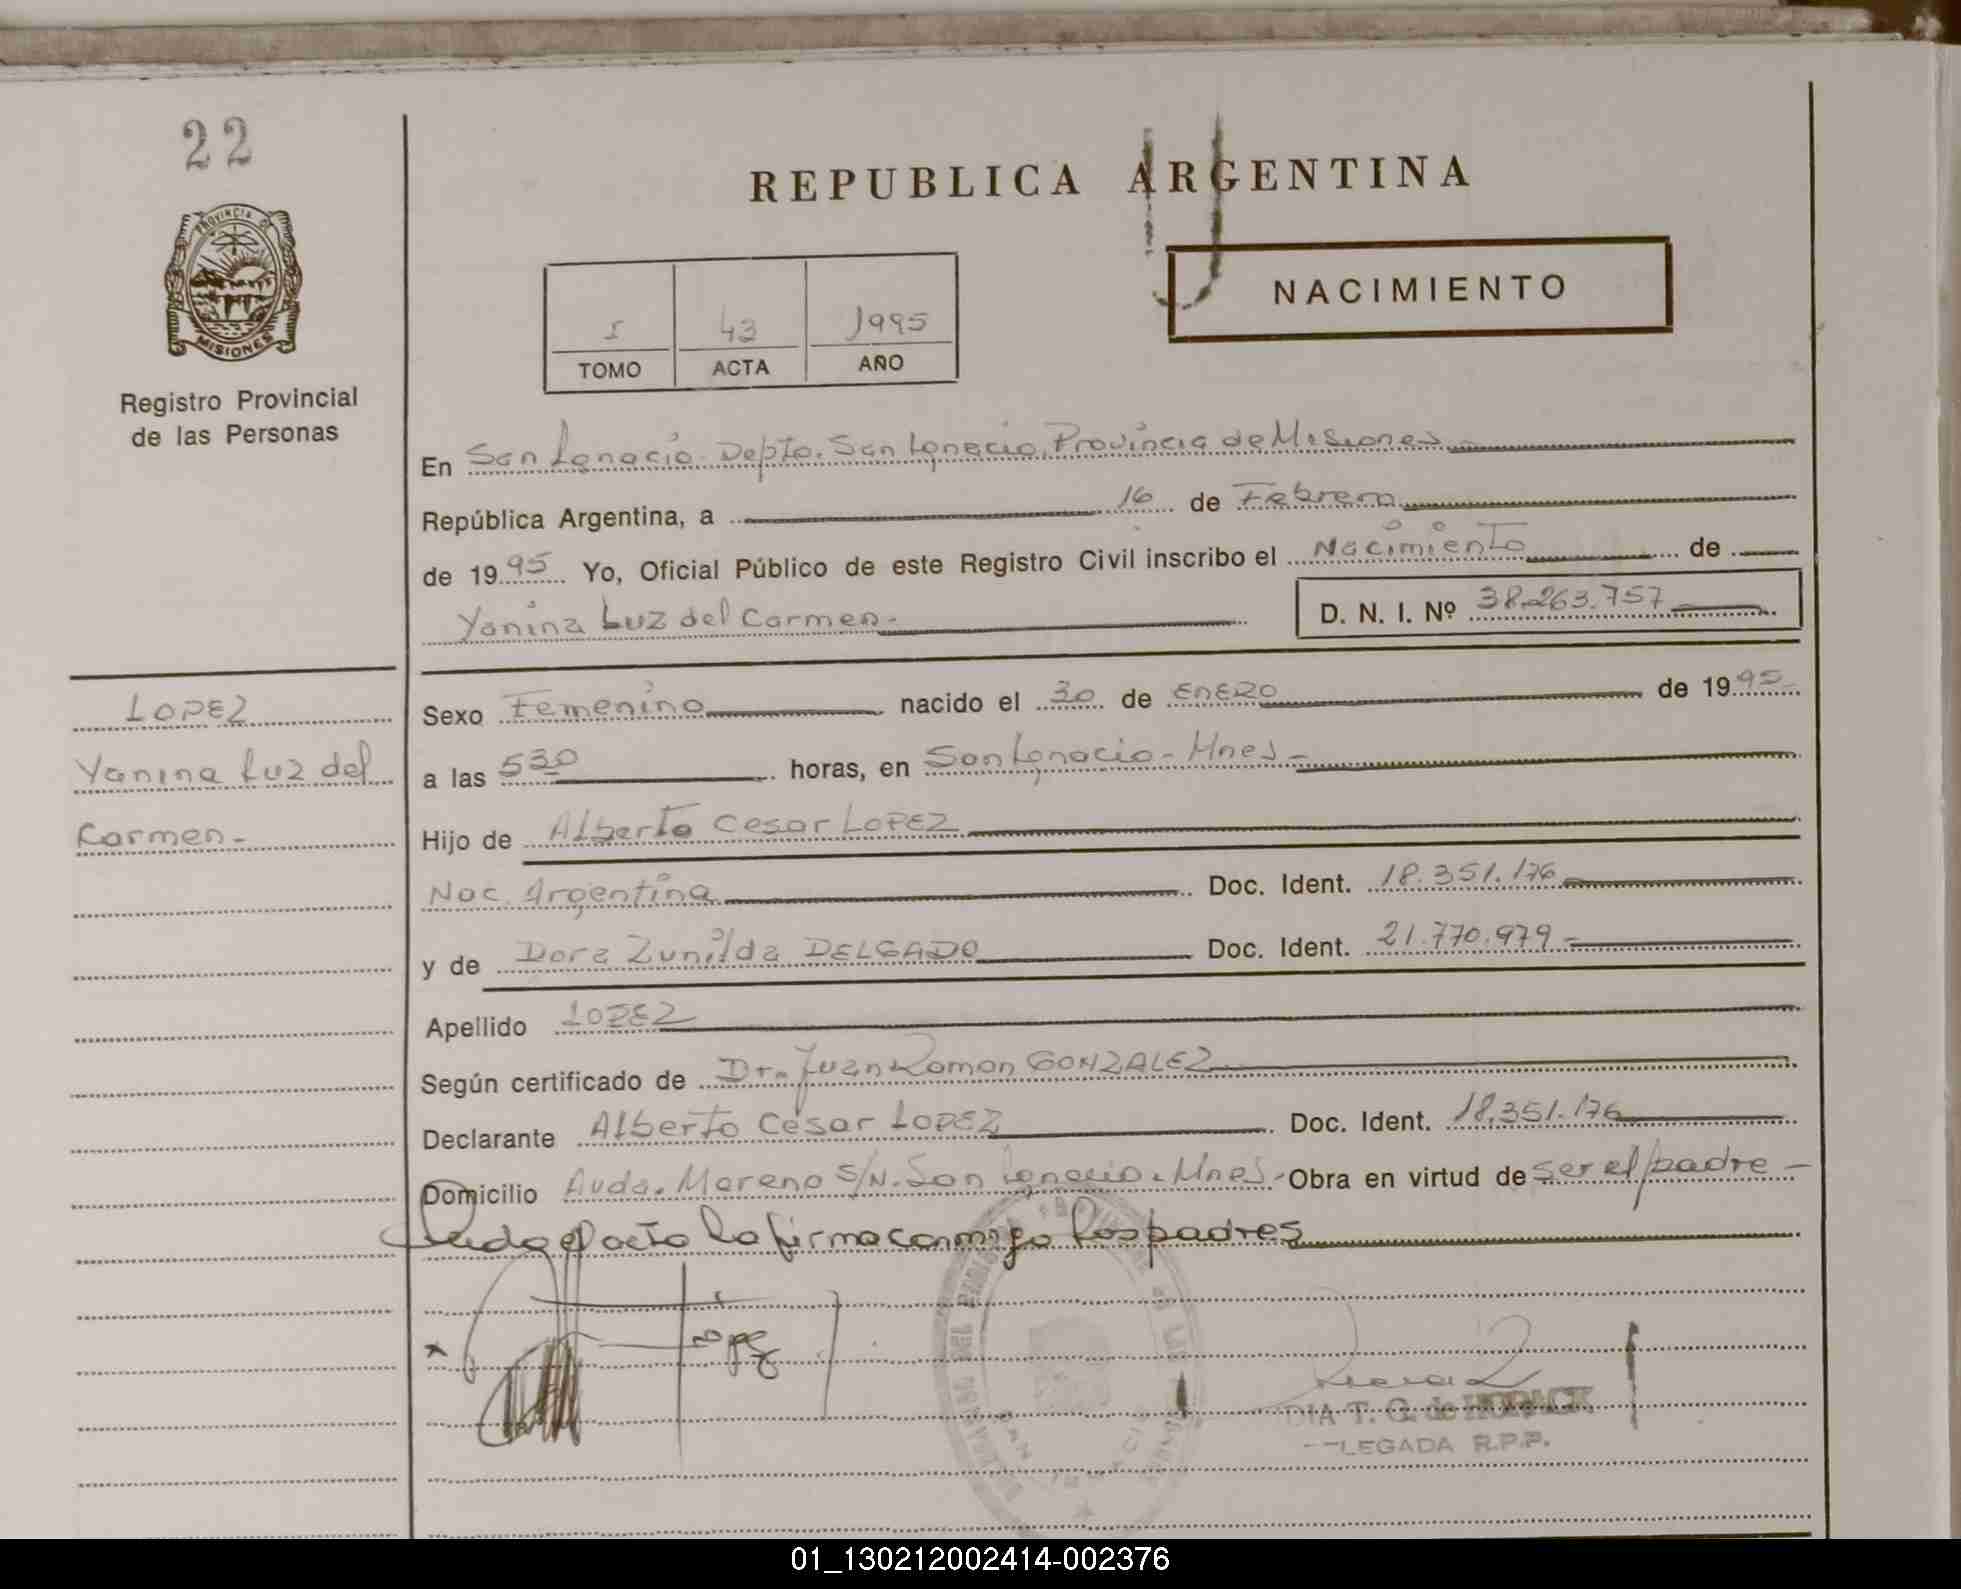 22
REPUBLICA ARGENTINA
PROVINCIA DE
MISIONES
Registro Provincial
de las Personas
NACIMIENTO
I 43 1995
TOMO ACTA AÑO
En San Ignacio. Depto. San Ignacio, Provincia de Misiones
República Argentina, a 16 de Febrero
de 1995 Yo, Oficial Público de este Registro Civil inscribo el Nacimiento de
Yanina Luz del Carmen.- D. N. I. Nº 38.263.757
LOPEZ
Yanina Luz del
Carmen-
Sexo Femenino nacido el 30 de ENERO de 1995
a las 530 horas, en San Ignacio - Mnes -
Hijo de Alberto Cesar LOPEZ
Nac. Argentina Doc. Ident. 18.351.176
y de Dora Zunilda DELGADO Doc. Ident. 21.770.979 -
Apellido LOPEZ
Según certificado de Dr. Juan Ramon GONZALEZ
Declarante Alberto César LOPEZ Doc. Ident. 18.351.176
Domicilio Avda. Moreno S/N. San Ignacio. Mnes - Obra en virtud de ser el padre -
el acto la firma conmigo los padres
Lopez
T. G. de HORACK
LEGADA R.P.P.
01_130212002414-002376